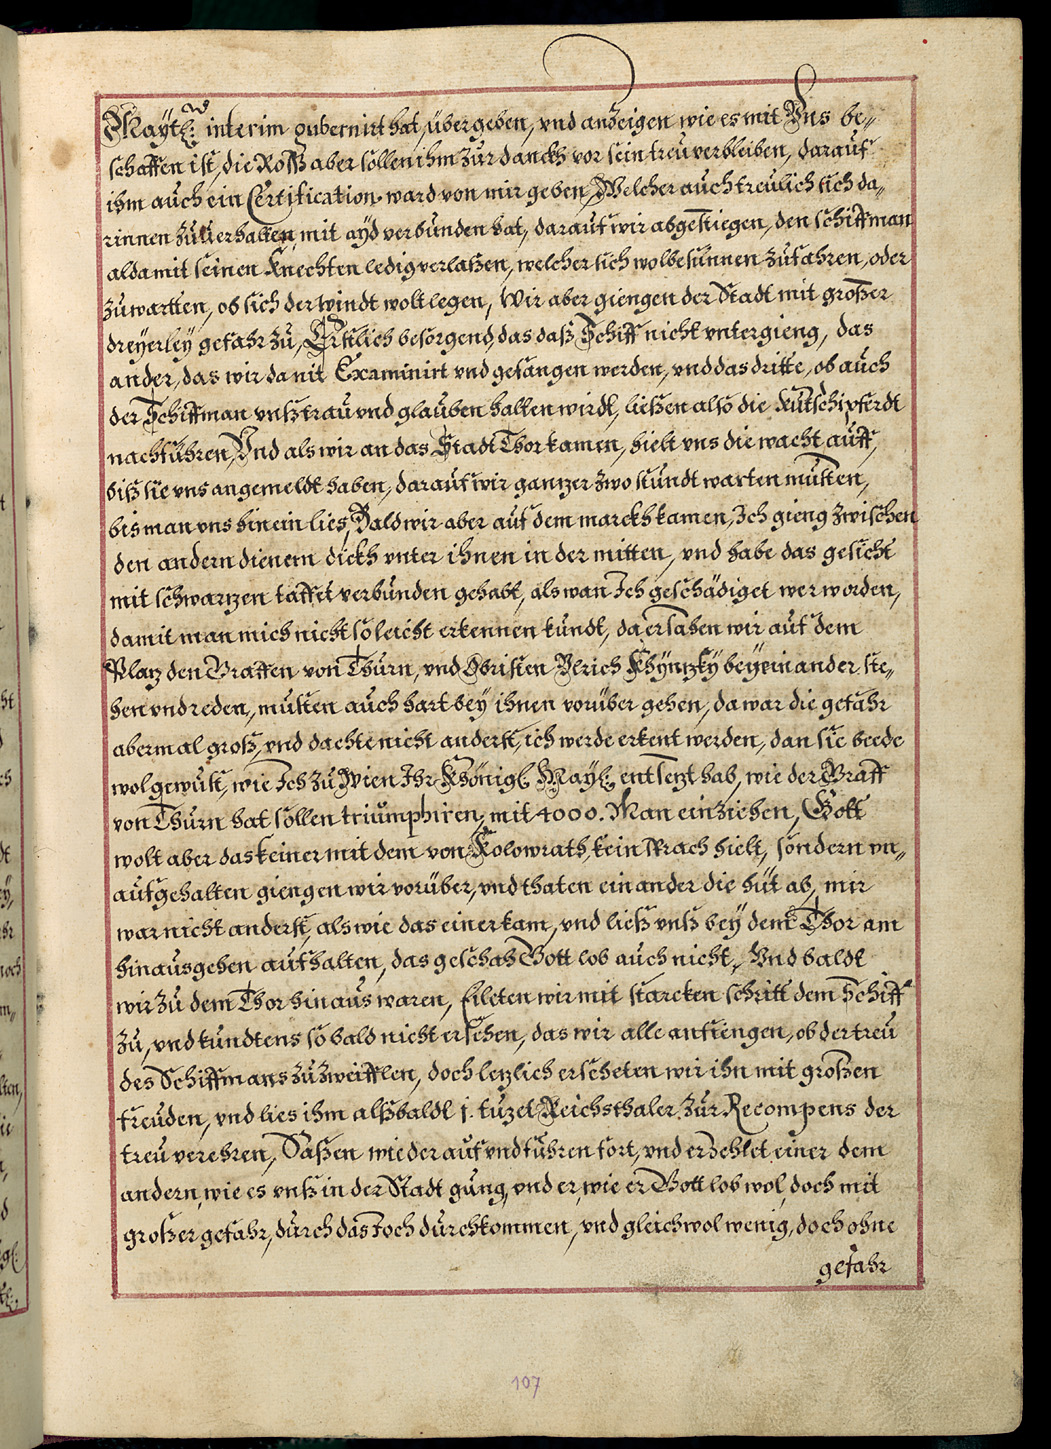 Maytt: interim gubernirt hat, übergeben, vnd anzeigen wie es mit Vns be„
schaffen ist, die Roß aber sollen ihm zur danckh vor sein treu verbleiben, darauf
ihm auch ein Certification ward von mir geben, Welcher auch treulich sich da„
rinnen zu verhalten, mit ayd verbunden hat, darauf wir abgestiegen, den schiffman
alda mit seinen Knechten ledig verlaßen, welcher sich wol besunnen zufahren, oder
zuwartten, ob sich der windt wolt legen, Wir aber giengen der Stadt mit großer
dreyerley gefahr zu, Erstlich besorgend, das daß Schiff nicht vntergieng, das
ander, das wir da nit Examinirt vnd gefangen werden, vnd das dritte, ob auch
der Schiffman vnß trau vnd glauben halten wirdt, ließen also die Kutschi pferdt
nachführen, Vnd als wir an das Stadt Thor kamen, hielt vns die wacht auff,
biß sie vns angemeldt haben, darauf wir gantzer zwo stundt warten musten,
bis man vns hinein lies, Bald wir aber auf dem marckh kamen, Ich gieng zwischen
den andern dienern dickh vnter ihnen in der mitten, vnd habe das gesicht
mit schwartzen taffet verbunden gehabt, als wan Ich geschädiget wer worden,
damit man mich nicht so leicht erkennen kundt, da ersahen wir auf dem
Platz den Graffen von Thurn, vnd Obristen Vlrich Khyntzky bey einander ste„
hen vnd reden, musten auch hart bey ihnen vorüber gehen, da war die gefahr
abermal groß, vnd dachte nicht anderst, ich werde erkent werden, dan sie beede
wol gewust, wie Ich zu Wien Ihr Khönigl: Mayt: entsetzt hab, wie der Graff
von Thurn hat sollen triumphiren, mit 4000. Man einziehen, Gott
wolt aber das keiner mit dem von Kolowrath, kein sprach hielt, sondern vn„
aufgehalten giengen wir vorüber, vnd thaten einander die hüt ab, mir
war nicht anderst, als wie das einer kam, vnd ließ vnß bey dem Thor am
hinausgehen aufhalten, das geschah Gott lob auch nicht, Vnd baldt
wir zu dem Thor hinaus waren, Eileten wir mit starcken schritt dem Schiff
zu, vnd kundtens so bald nicht ersehen, das wir alle anfiengen, ob der treu
des Schiffmans zu zweifflen, doch letzlich erseheten wir ihn mit großen
freuden, vnd lies ihm alßbaldt j. tuzet Reichsthaler, zur Recompens der
treu verehren, Saßen wieder auf vnd fuhren fort, vnd erzehlet einer dem
andern, wie es vnß in der Stadt gung, vnd er, wie er Gott lob wol, doch mit
großer gefahr, durch das Joch durchkommen, vnd gleichwol wenig, doch ohne
gefahr
107